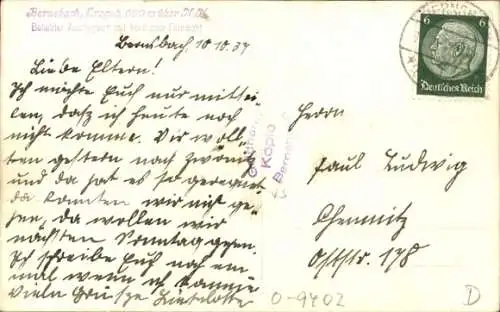 Bernsbach, Erzgeb. 650 m über N.N.
Beliebter Ausflugsort mit herrlicher Fernsicht
Bernsbach, 10.10.37
Liebe Eltern!
Ich möchte Euch nur mittei-
len, daß ich heute noch
nicht komme. Wir woll-
ten gestern nach Zwönitz
und da hat es so geregnet
da konnten wir nicht ge-
hen, da wollen wir
nächsten Sonntag gehen.
Ich schreibe Euch noch ein-
mal wenn ich komme
Viele Grüße Lieselotte
6 6
Deutsches Reich
Kopie
Herrn
Paul Ludwig
Chemnitz
Oststr. 178
0-9402
D